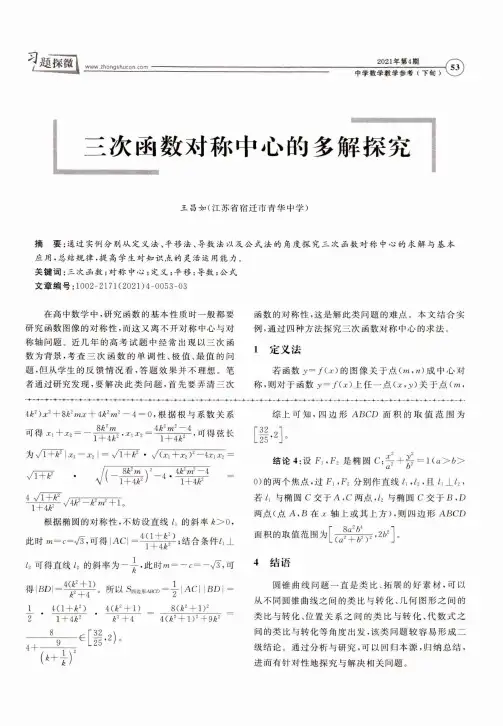 习题探微
www.zhongshucan.com
2021年第4期
中学数学教学参考(下旬)
53
三次函数对称中心的多解探究
王昌如(江苏省宿迁市青华中学)
摘 要:通过实例分别从定义法、平移法、导数法以及公式法的角度探究三次函数对称中心的求解与基本
应用,总结规律,提高学生对知识点的灵活运用能力。
关键词:三次函数;对称中心;定义;平移;导数;公式
文章编号:1002-2171(2021)4-0053-03
在高中数学中,研究函数的基本性质时一般都要
研究函数图像的对称性,而这又离不开对称中心与对
称轴问题。近几年的高考试题中经常出现以三次函
数为背景,考查三次函数的单调性、极值、最值的问
题,但从学生的反馈情况看,答题效果并不理想。笔
者通过研究发现,要解决此类问题,首先要弄清三次
函数的对称性,这是解此类问题的难点。本文结合实
例,通过四种方法探究三次函数对称中心的求法。
1 定义法
若函数 y=f(x)的图像关于点(m,n)成中心对
称,则对于函数 y=f(x)上任一点(x,y)关于点(m,
4k²)x²+8k²mx+4k²m²-4=0,根据根与系数关系
可得 x₁+x₂=-8k²m/(1+4k²),x₁x₂=(4k²m²-4)/(1+4k²),可得弦长
为√(1+k²)|x₁-x₂|=√(1+k²)·√((x₁+x₂)²-4x₁x₂)=
√(1+k²) · √((-8k²m/(1+4k²))²-4·(4k²m²-4)/(1+4k²)) =
4√(1+k²)/(1+4k²) √(4k²-k²m²+1)。
根据椭圆的对称性,不妨设直线 l₁ 的斜率 k>0,
此时 m=c=√3,可得|AC|=4(1+k²)/(1+4k²);结合条件l₁⊥
l₂ 可得直线 l₂ 的斜率为-1/k,此时m=-c=-√3,可
得|BD|=4(k²+1)/(k²+4)。所以 S四边形ABCD=1/2|AC||BD|=
1/2 · 4(1+k²)/(1+4k²) · 4(k²+1)/(k²+4) = 8(k²+1)²/(4(k²+1)²+9k²) =
8/(4+9/(k+1/k)²)∈[32/25,2)。
综上可知,四边形 ABCD 面积的取值范围为
[32/25,2]。
结论4:设 F₁,F₂ 是椭圆 C:x²/a²+y²/b²=1(a>b>
0)的两个焦点,过 F₁,F₂ 分别作直线 l₁,l₂,且 l₁⊥l₂,
若 l₁ 与椭圆 C交于 A,C 两点,l₂ 与椭圆 C交于 B,D
两点(点 A,B 在 x 轴上或其上方),则四边形 ABCD
面积的取值范围为[8a²b⁴/(a²+b²)²,2b²]。
4 结语
圆锥曲线问题一直是类比、拓展的好素材,可以
从不同圆锥曲线之间的类比与转化、几何图形之间的
类比与转化、位置关系之间的类比与转化、代数式之
间的类比与转化等角度出发,该类问题较容易形成二
级结论。通过分析与研究,可以回归本源,归纳总结,
进而有针对性地探究与解决相关问题。